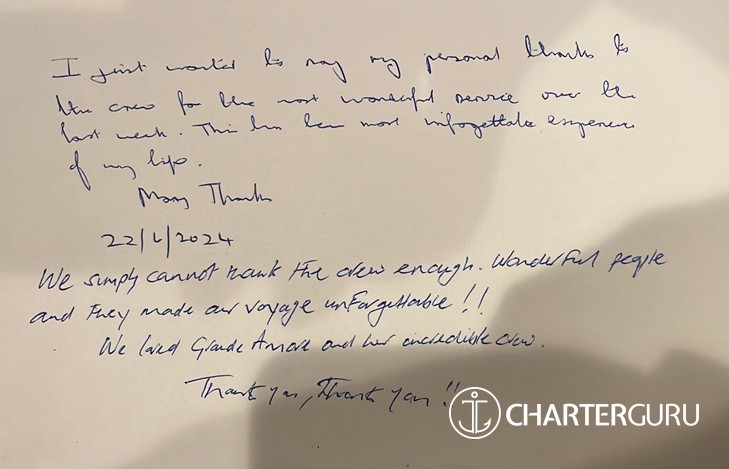 I just wanted to say my personal thanks to
the crew for the most wonderful service over the
last week. This has been most unfogettable experience
of my life.
Many Thanks
22/6/2024
We simply cannot thank the crew enough. Wonderful people
and they made our voyage unforgettable!!
We loved Grande Amore and her incredible crew.
Thank you, Thank you!!
CHARTERGURU